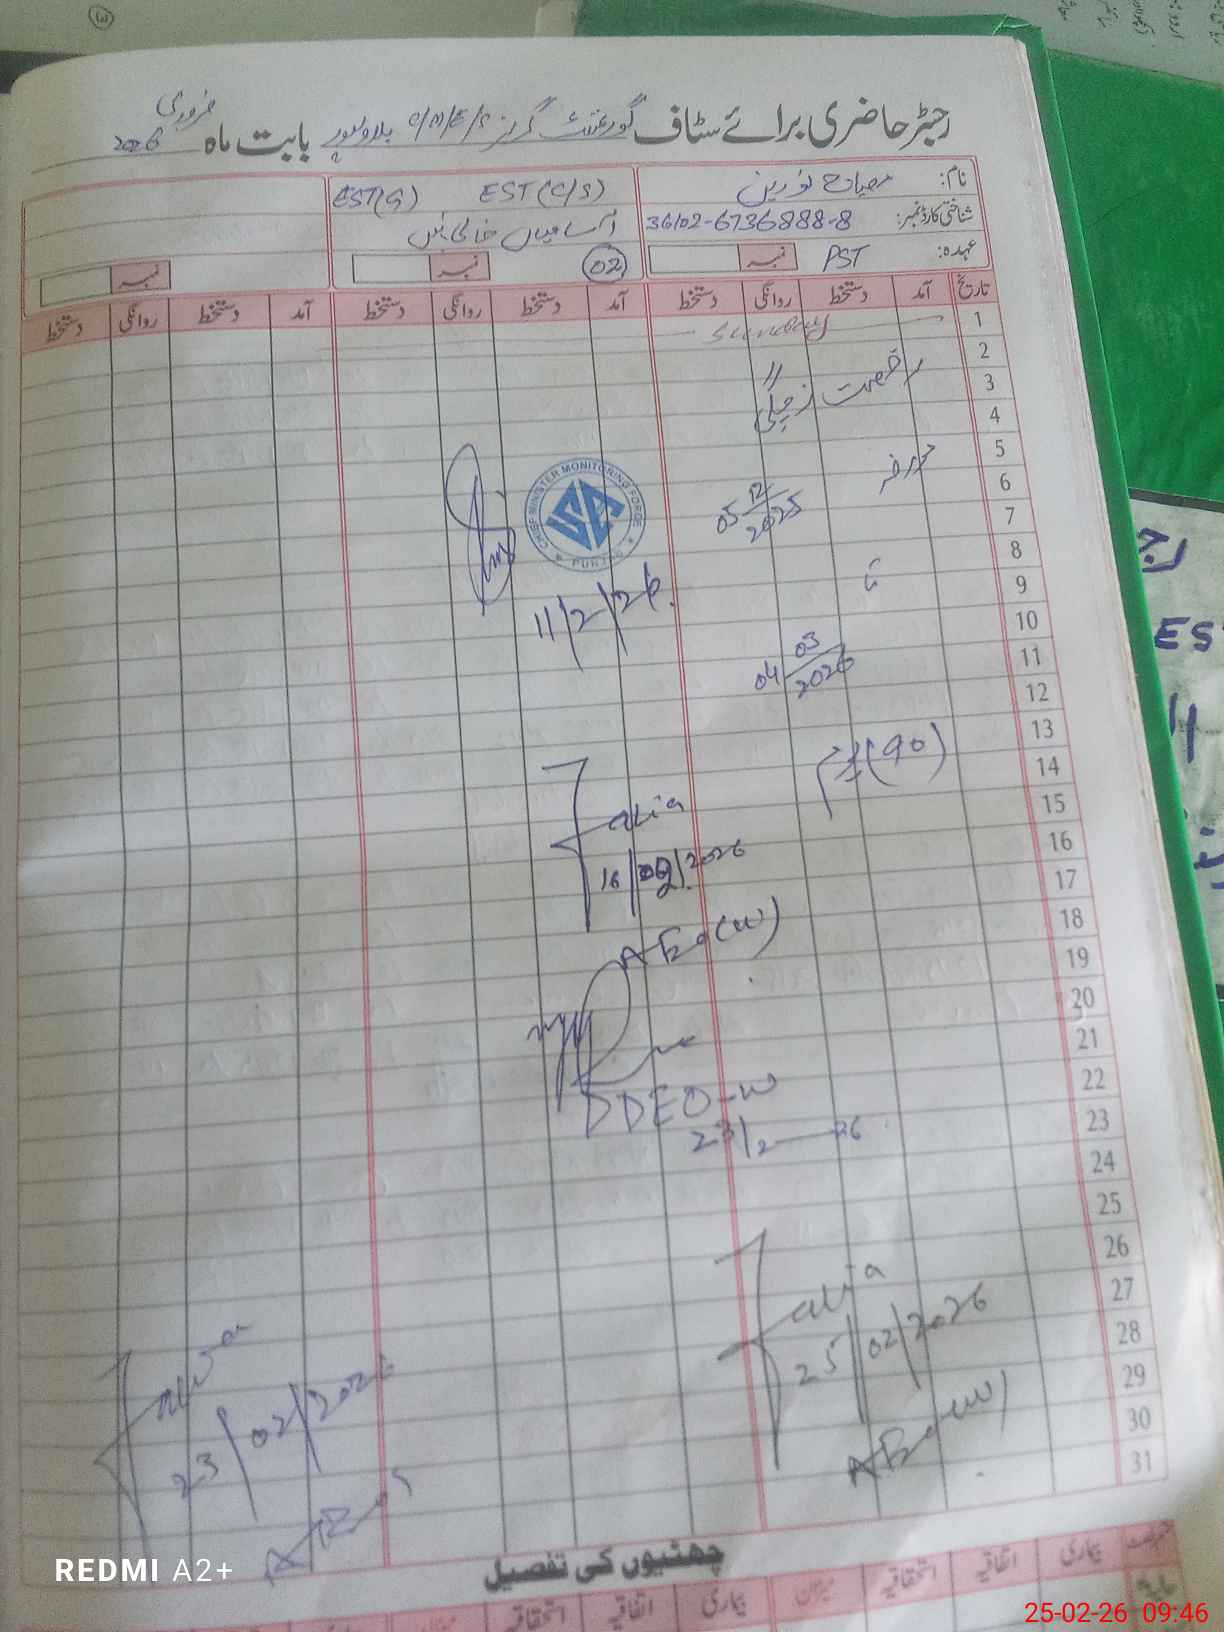 رجسٹر حاضری برائے سٹاف گورنمنٹ گرلز C/M/E/S بلاولپور بابت ماہ فروری 2026
نام: مصباح نورین
EST(C/S) EST(G)
شناختی کارڈ نمبر: 36102-6736888-8
آسامیاں خالی ہیں
عہدہ: PST نمبر
02 نمبر
نمبر
تاریخ آمد دستخط روانگی دستخط آمد دستخط روانگی دستخط آمد دستخط روانگی دستخط
1 Sunday
2
3 رخصت زچگی "
4
5 مورخہ
6 05 12 2025
CHIEF MINISTER MONITORING FORCE PUNJAB
7
8
9 تا
11/2/26
10
11 04 03 2026
12
13
14 (90)
15
Fazia
16
16/02/2026
17
18
AEO(W)
19
20
21
22
DDEO-W
23
23/2 26
24
25
26
27 Fazia
28 25/02/2026
29
23/02/2026
30 AEO(W)
31
چھٹیوں کی تفصیل
بیماری اتفاقیہ استحقاقیہ میزان بیماری اتفاقیہ استحقاقیہ
REDMI A2+
25-02-26 09:46
ES